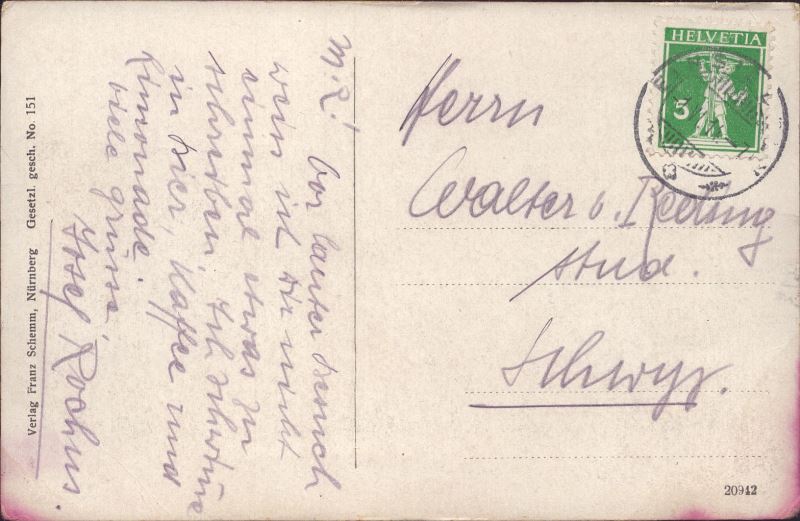 M. L!
Vor lauter Besuch
weiss ich Dir nicht
einmal etwas zu
schreiben. Ich schwimme
in Bier, Kaffee und
Limonade.
Viele Grüsse
Josef Rochus.
Verlag Franz Schemm, Nürnberg Gesetzl. gesch. No. 151
HELVETIA
3
Herrn
Walter v. Reding
stud.
Schwyz.
20942